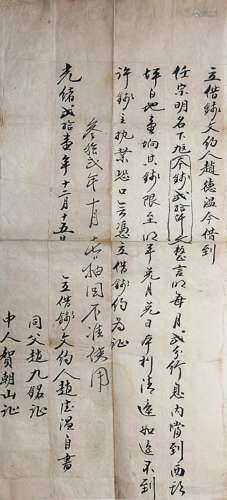 立借錢文約人趙德温今借到
任宗明名下旭本錢貳拾仟文整言明每月貳分行息内當到西坊
坪白地壹垧其錢限至明年兑月兑日本利清還如違不到
許錢主執業恐口無憑立借錢約為証
叁拾貳年十月 抽回不准使用
光绪貳拾壹年十二月十五日
立借錢文約人趙德温自書
同父趙九銘証
中人賀朝山証